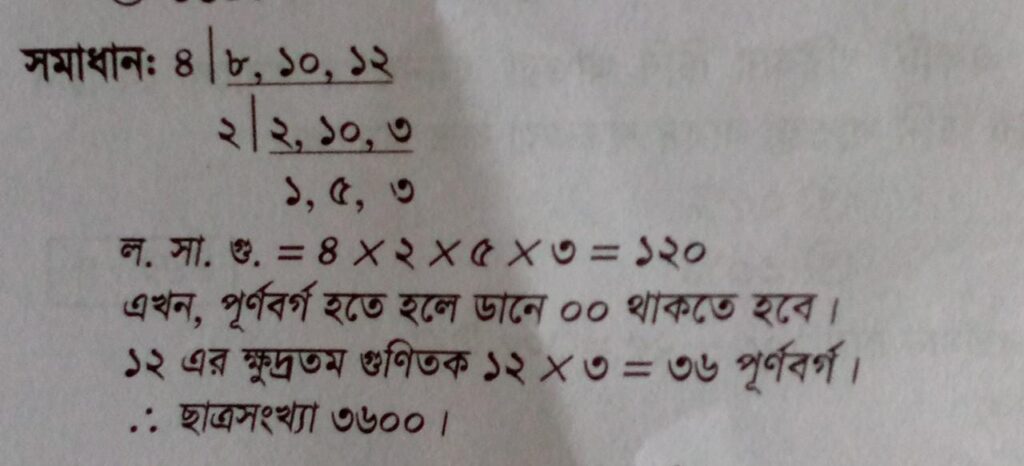 সমাধানঃ ৪ | ৮, ১০, ১২
২ | ২, ১০, ৩
১, ৫, ৩
ল. সা. গু. = ৪ × ২ × ৫ × ৩ = ১২০
এখন, পূর্ণবর্গ হতে হলে ডানে ০০ থাকতে হবে।
১২ এর ক্ষুদ্রতম গুণিতক ১২ × ৩ = ৩৬ পূর্ণবর্গ।
∴ ছাত্রসংখ্যা ৩৬০০।